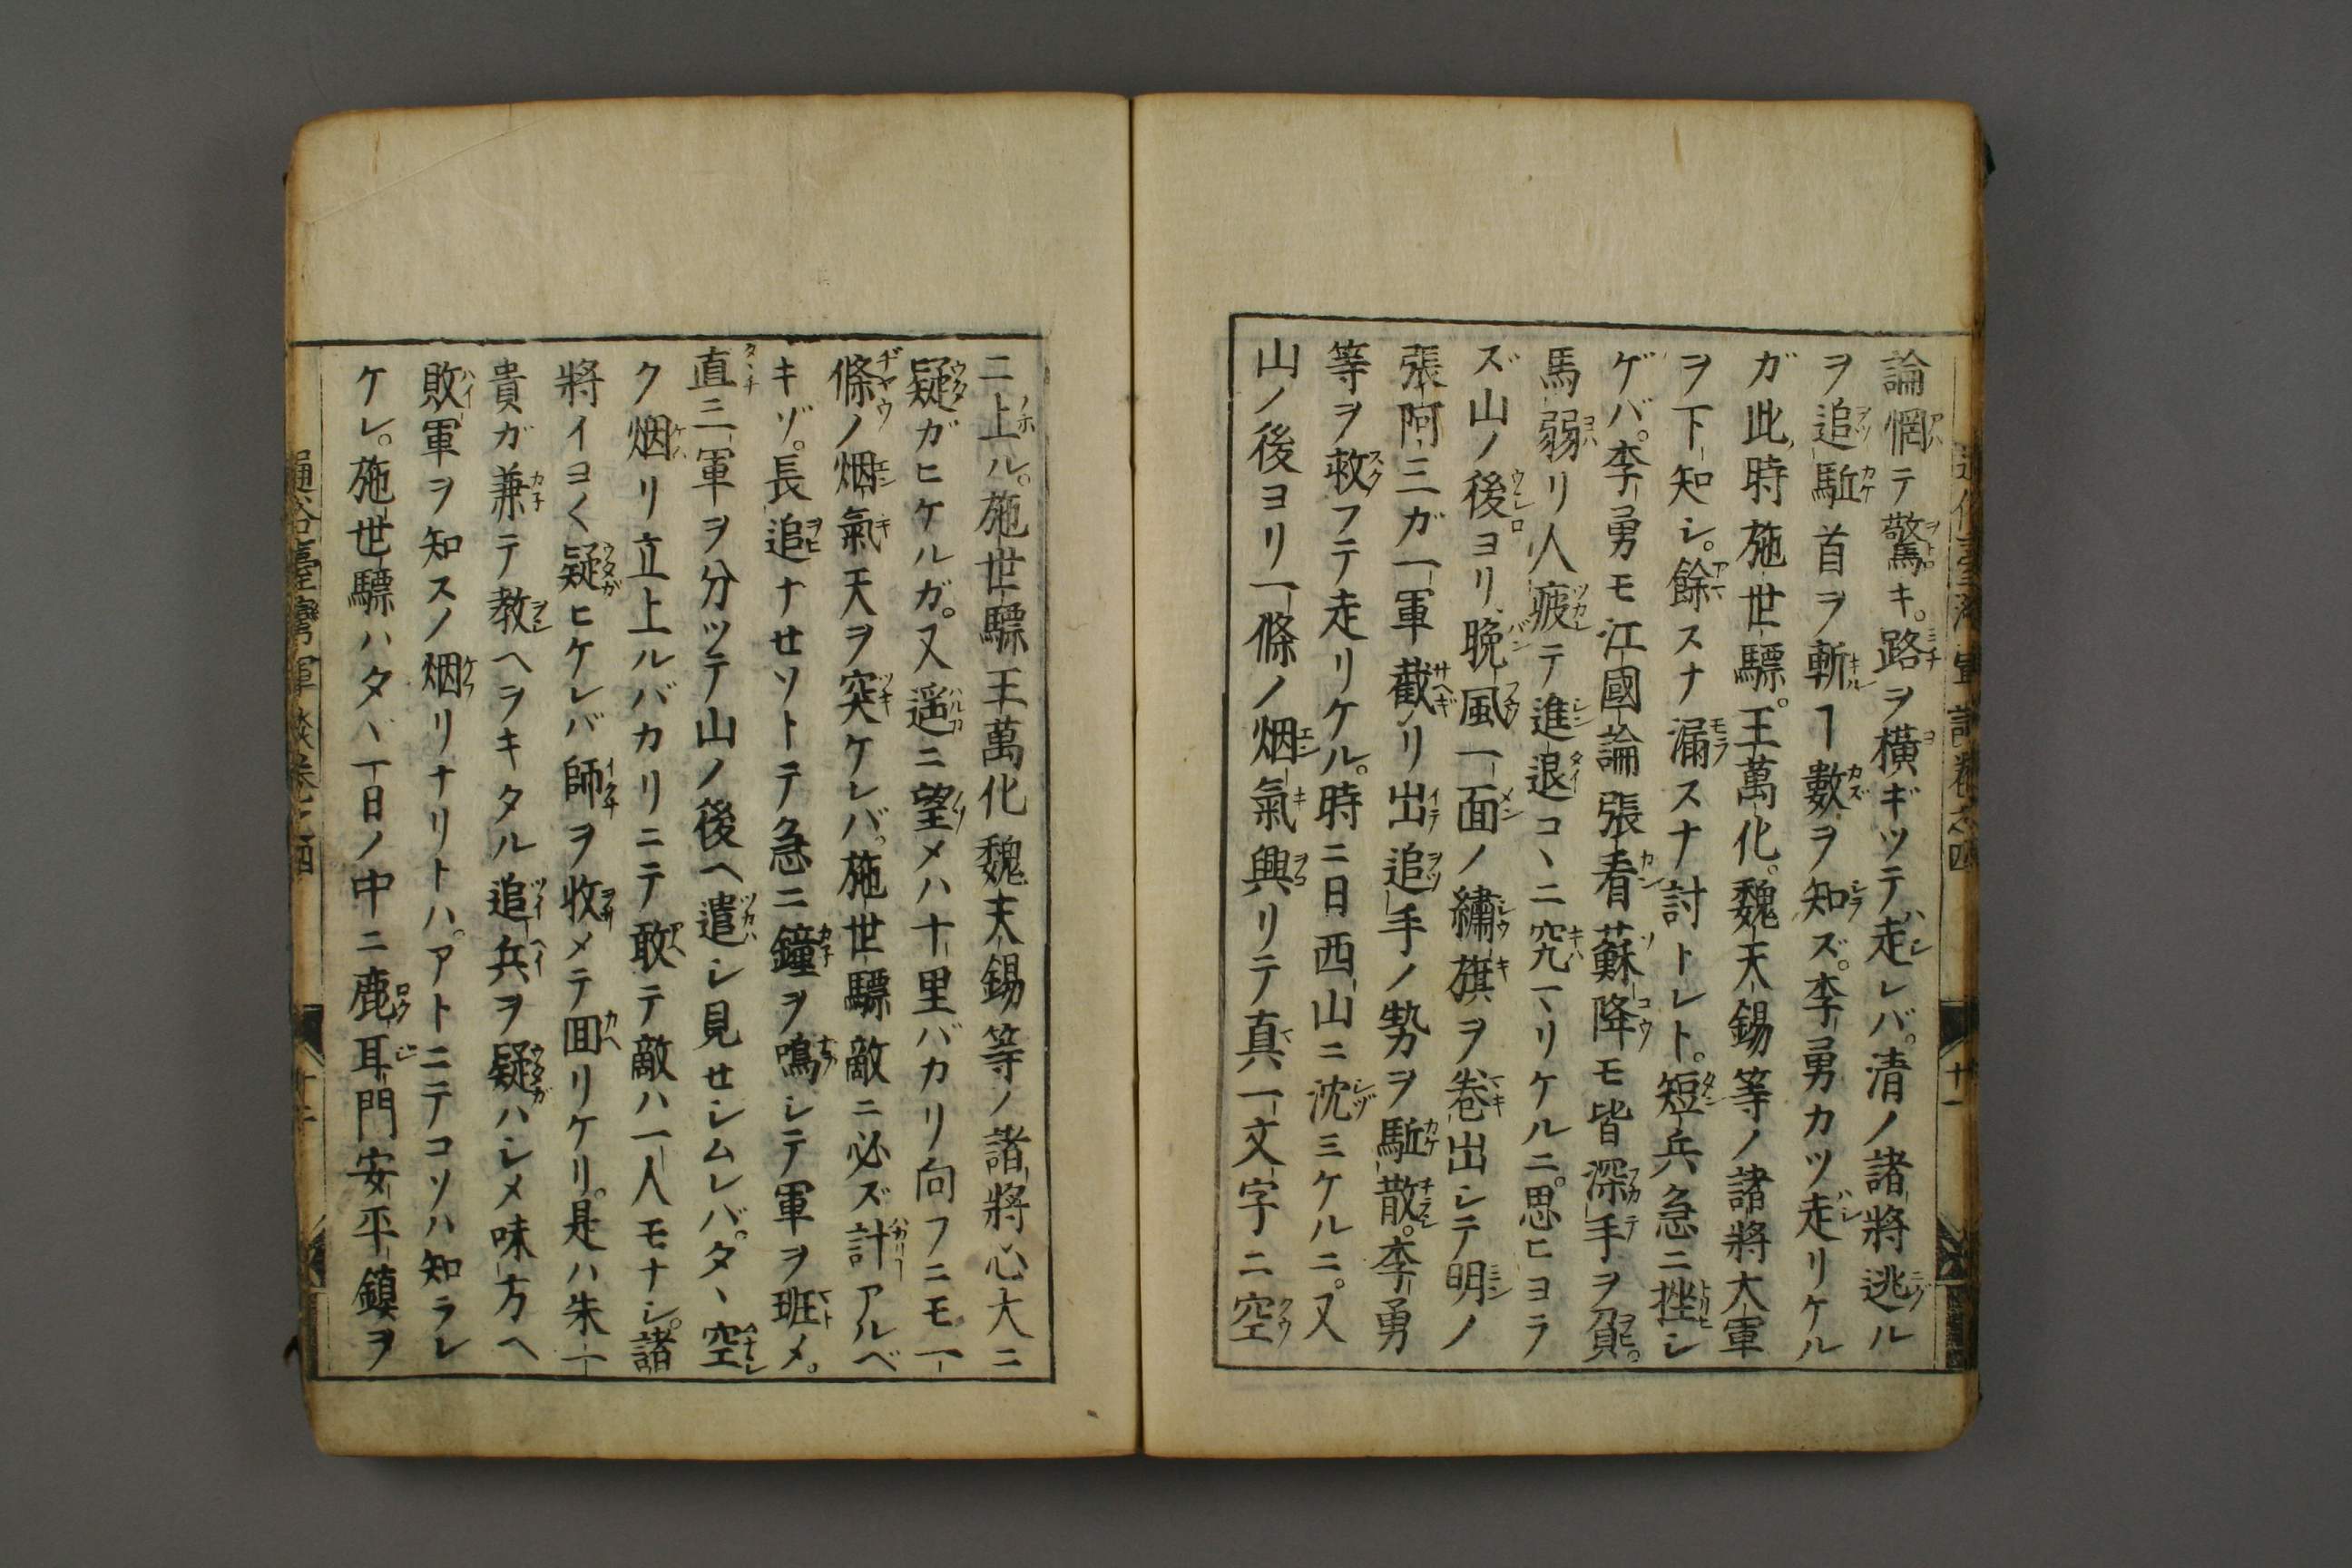 論惘テ驚キ。路ヲ橫ギツテ走レバ。清ノ諸將逃ル
ヲ追駈首ヲ斬ヿ數ヲ知ズ。李勇カツ走リケル
ガ此時施世驃。王萬化。魏天錫等ノ諸將大軍
ヲ下知シ。餘スナ漏スナ討トレト。短兵急ニ挫シ
ゲバ。李勇モ江國論張看蘇降モ皆深手ヲ負。
馬弱リ人疲テ進退コヽニ究マリケルニ。思ヒヨラ
ズ山ノ後ヨリ晩風一面ノ繡旗ヲ卷出シテ明ノ
張阿三ガ一軍截リ出追手ノ勢ヲ駈散。李勇
等ヲ救フテ走リケル。時ニ日西山ニ沈ミケルニ。又
山ノ後ヨリ一條ノ烟氣興リテ真一文字ニ空
ニ上ル。施世驃王萬化魏天錫等ノ諸將心大ニ
疑ガヒケルガ。又遥ニ望メハ十里バカリ向フニモ一
條ノ烟氣天ヲ突ケレバ。施世驃敵ニ必ズ計アルベ
キゾ。長追ナせソトテ急ニ鐘ヲ鳴シテ軍ヲ班メ。
直ニ軍ヲ分ツテ山ノ後ヘ遣シ見せシムレバ。タヽ空
ク烟リ立上ルバカリニテ敢テ敵ハ一人モナシ。諸
將イヨ〱疑ヒケレバ師ヲ收メテ囬リケリ。是ハ朱一
貴ガ兼テ教ヘヲキタル追兵ヲ疑ハシメ味方ヘ
敗軍ヲ知スノ烟リナリトハ。アトニテコソハ知ラレ
ケレ。施世驃ハタヾ一日ノ中ニ鹿耳門安平鎮ヲ
通俗臺灣軍談卷之四